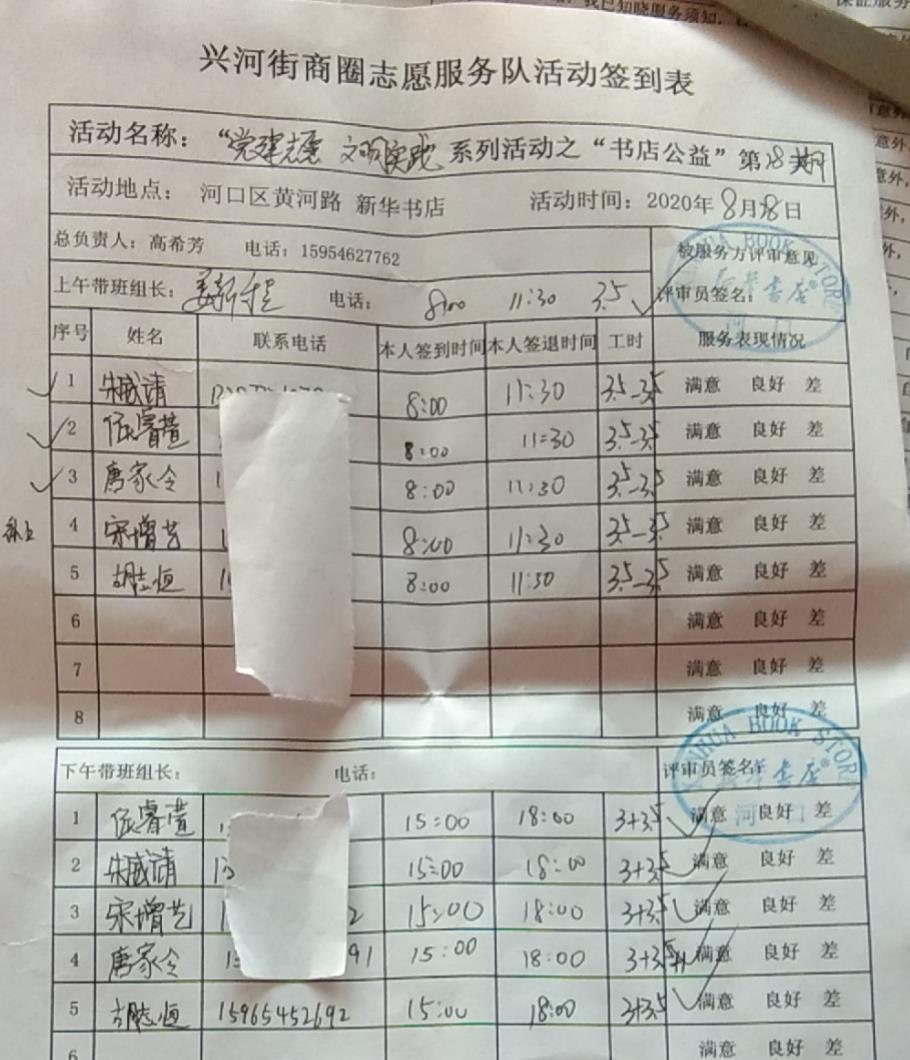 我已知晓服务须知，
兴河街商圈志愿服务队活动签到表
活动名称：“党建志愿 文明实践 系列活动之“书店公益”第18期
活动地点： 河口区黄河路 新华书店 活动时间：2020年8月18日
总负责人：高希芳 电话：15954627762 被服务方评审意见
上午带班组长： 电话： 8:00 11:30 3.5 评审员签名：
序号 姓名 联系电话 本人签到时间 本人签退时间 工时 服务表现情况
1 朱威靖 8:00 11:30 3.5-3.5 满意 良好 差
2 伍睿萱 8:00 11:30 3.5-3.5 满意 良好 差
3 唐家令 8:00 11:30 3.5-3.5 满意 良好 差
4 宋增艺 8:00 11:30 3.5-3.5 满意 良好 差
5 胡志恒 8:00 11:30 3.5-3.5 满意 良好 差
6 满意 良好 差
7 满意 良好 差
8 满意 良好 差
XINHUA BOOK STORE
下午带班组长： 电话： 评审员签名：
1 伍睿萱 15:00 18:00 3+3.5 满意 良好 差
2 朱威靖 15:00 18:00 3+3.5 满意 良好 差
3 宋增艺 2 15:00 18:00 3+3.5 满意 良好 差
4 唐家令 91 15:00 18:00 3+3.5 满意 良好 差
5 胡志恒 15965452692 15:00 18:00 3+3.5 满意 良好 差
6 满意 良好 差